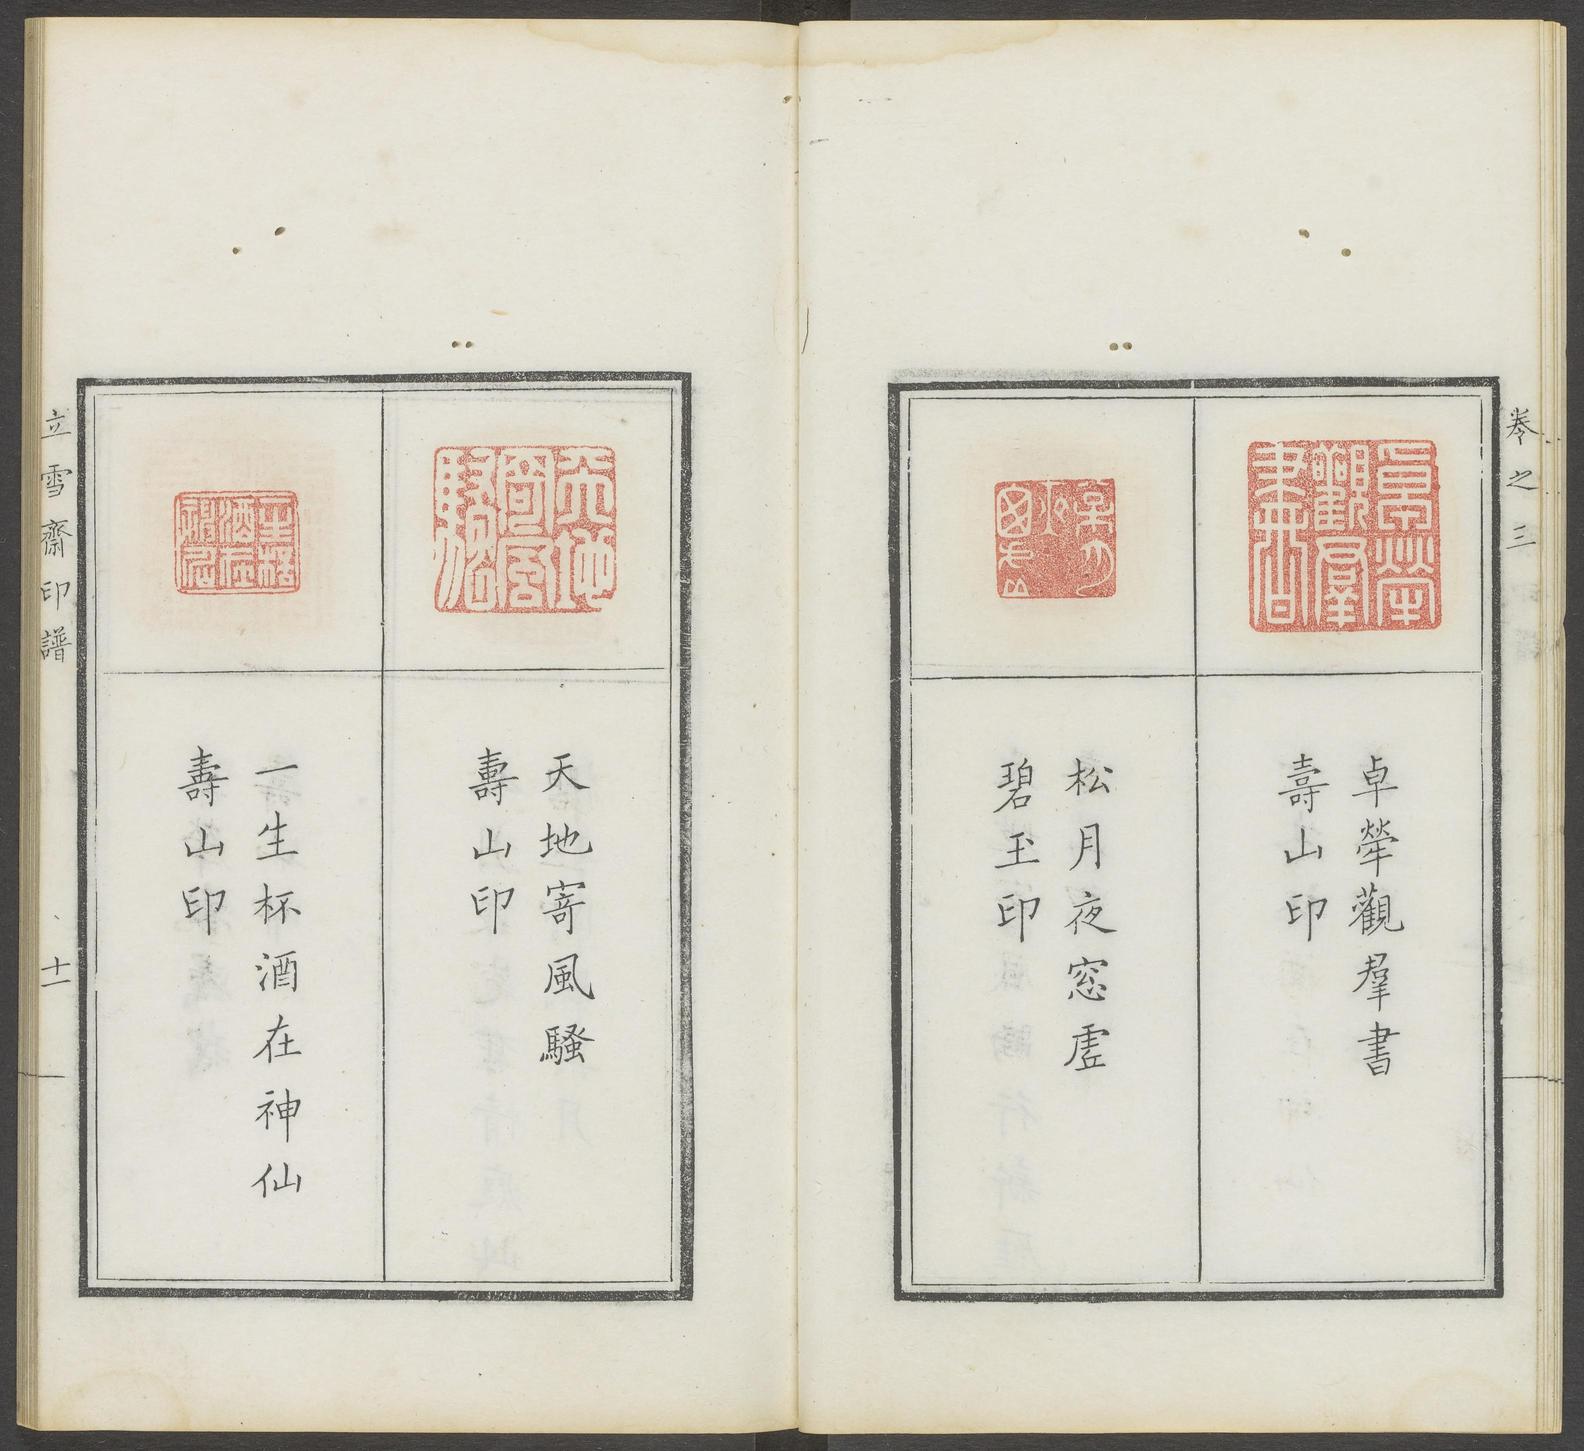 卷之三
卓犖觀羣書
壽山印
松月夜窓虗
碧玉印
天地寄風騷
壽山印
一生杯酒在神仙
壽山印
立雪齋印譜
十一